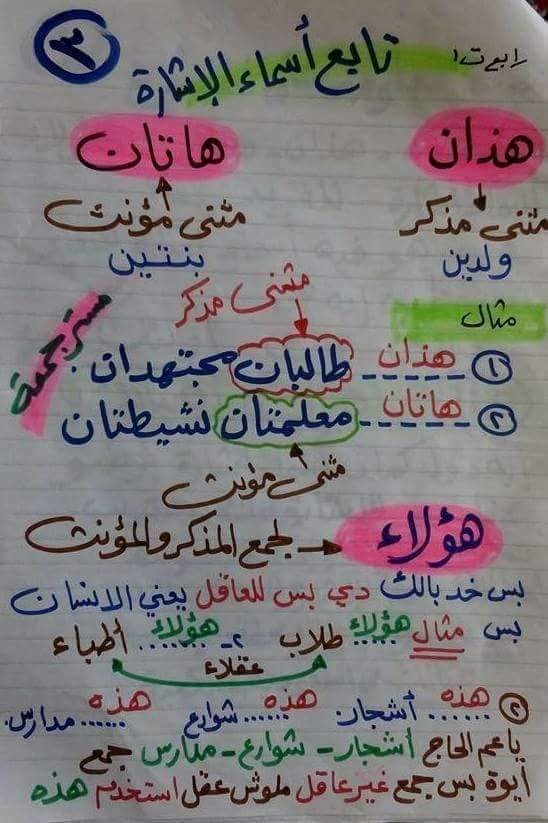 رابع ت١
٣
تابع أسماء الإشارة
هذان هاتان
مثنى مذكر مثنى مؤنث
ولدين بنتين
مثنى مذكر
مثال
مستر جمعة
١ هذان طالبان مجتهدان .
٢ هاتان معلمتان نشيطتان
مثنى مؤنث
هؤلاء لجمع المذكر والمؤنث
بس خد بالك دي بس للعاقل يعني الانسان
بس مثال هؤلاء ..... طلاب ٢- هؤلاء ...... أطباء
عقلاء
٢ هذه ...... أشجار. هذه ...... شوارع هذه ...... مدارس.
يا عم الحاج أشجار - شوارع - مدارس جمع
أيوة بس جمع غير عاقل ملوش عقل استخدم هذه